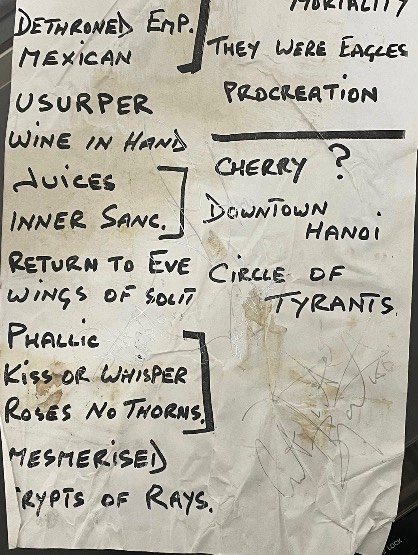 DETHRONED EMP.
MEXICAN
USURPER
WINE IN HAND
JUICES
INNER SANC.
RETURN TO EVE
WINGS OF SOLIT
PHALLIC
KISS OR WHISPER
ROSES NO THORNS.
MESMERISED
CRYPTS OF RAYS.
MORTALITY
THEY WERE EAGLES
PROCREATION
CHERRY ?
DOWNTOWN
HANOI
CIRCLE OF
TYRANTS.
LOCK